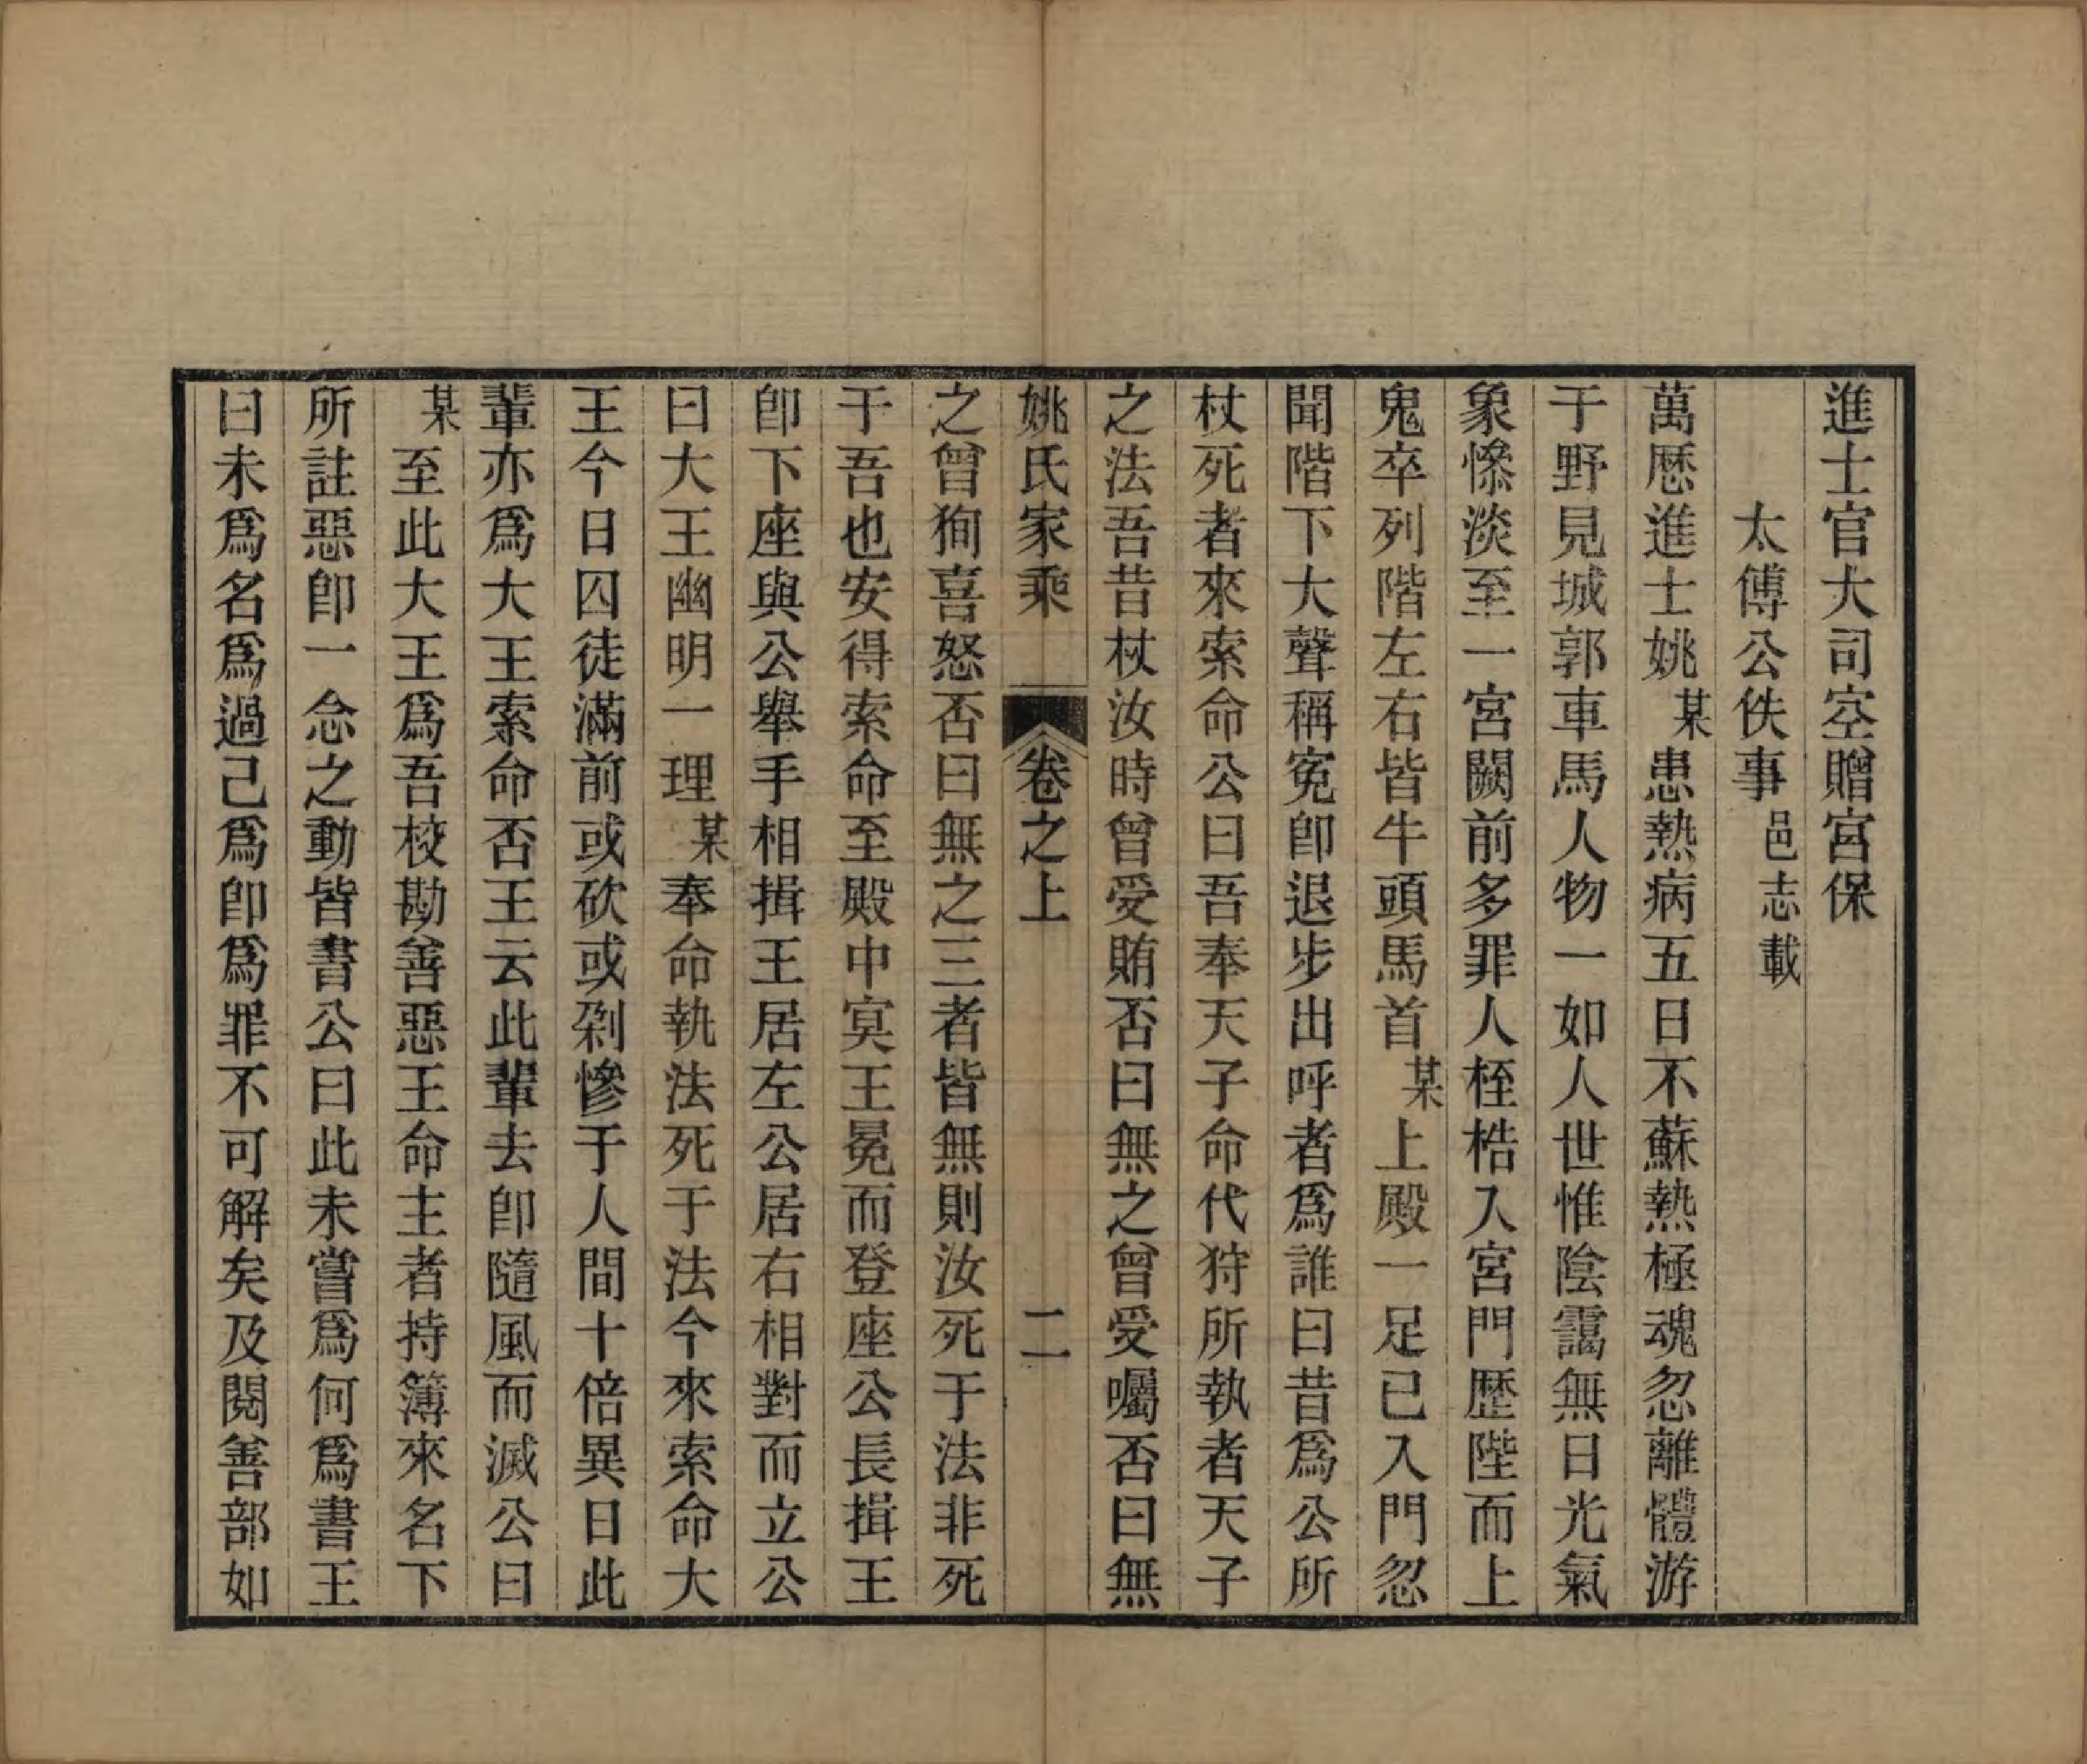 進士官大司空贈宮保
太傅公佚事邑志載
萬厯進士姚某患熱病五日不蘇熱極魂忽離體游
于野見城郭車馬人物一如人世惟陰靄無日光氣
象慘淡至一宮闕前多罪人桎梏入宮門歷陛而上
鬼卒列階左右皆牛頭馬首某上殿一足已入門忽
聞階下大聲稱寃卽退步出呼者爲誰曰昔爲公所
杖死者來索命公曰吾奉天子命代狩所執者天子
之法吾昔杖汝時曾受賄否曰無之曾受囑否曰無
姚氏家乘 卷之上 二
之曾狥喜怒否曰無之三者皆無則汝死于法非死
于吾也安得索命至殿中冥王冕而登座公長揖王
卽下座與公舉手相揖王居左公居右相對而立公
曰大王幽明一理某奉命執法死于法今來索命大
王今日囚徒滿前或砍或剁慘于人間十倍異日此
輩亦爲大王索命否王云此輩去卽隨風而滅公曰
某至此大王爲吾校勘善惡王命主者持簿來名下
所註惡卽一念之動皆書公曰此未嘗爲何爲書王
曰未爲名爲過己爲卽爲罪不可解矣及閱善部如